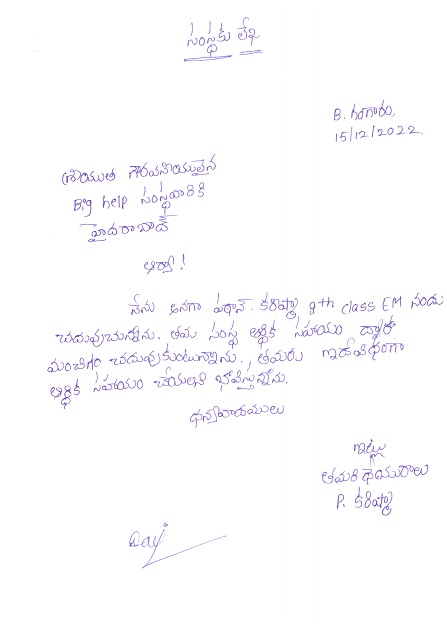 సంస్థకు లేఖ
B. గంగారం,
15/12/2022.
శ్రీయుత గౌరవనీయులైన
Big help సంస్థవారికి
హైదరాబాద్
ఆర్యా!
నేను అనగా పఠాన్. కరిష్మా 8th class EM నందు
చదువుచున్నాను. తమ సంస్థ ఆర్థిక సహాయం ద్వారా
మంచిగా చదువుకుంటున్నాను., తమరు ఇదేవిధంగా
ఆర్థిక సహాయం చేయాలని భావిస్తున్నాను.
ధన్యవాదములు
ఇట్లు
తమరి
P. కరిష్మా